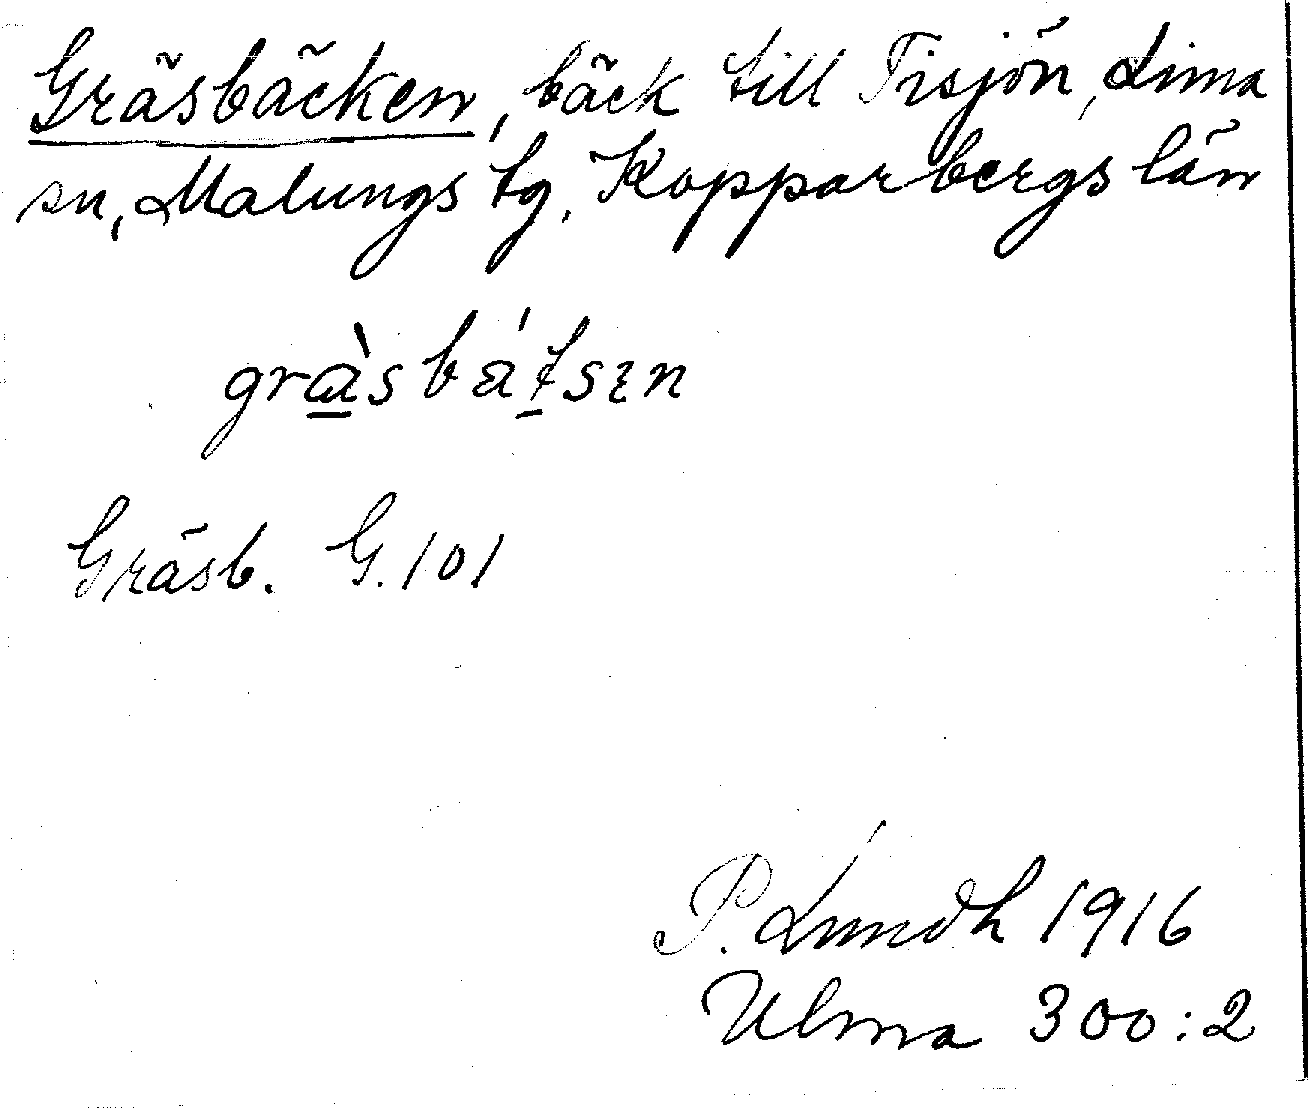 Gräsbäcken, bäck till Tisjön, Lima
sn, Malungs tg. Kopparbergs län
gràsbátsın
Gräsb. G. 101
P. Lundh 1916
Ulma 300:2